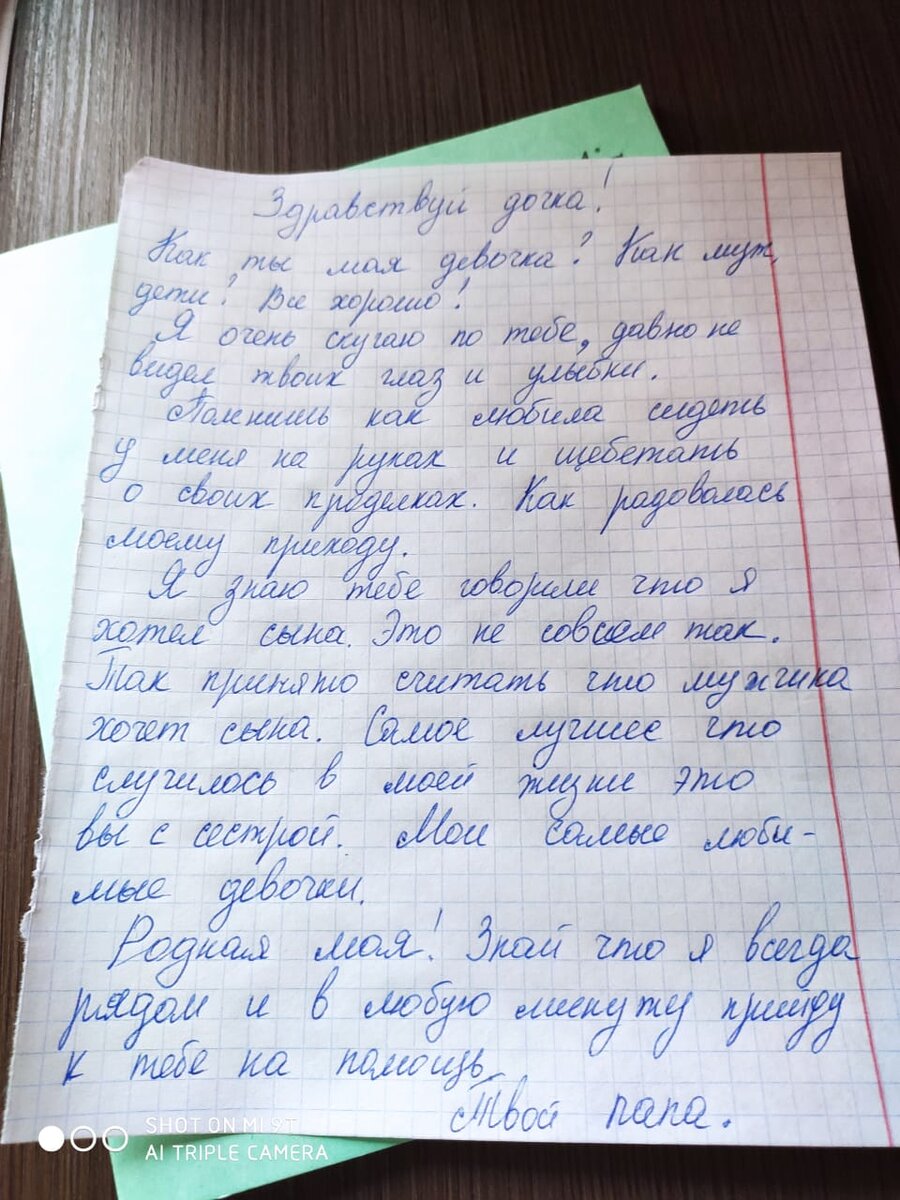 Здравствуй дочка!
Как ты моя девочка? Как муж,
дети? Все хорошо!
Я очень скучаю по тебе, давно не
видел твоих глаз и улыбки.
Помнишь как любила сидеть
у меня на руках и щебетать
о своих проделках. Как радовалась
моему приходу.
Я знаю тебе говорили что я
хотел сына. Это не совсем так.
Так принято считать что мужчина
хочет сына. Самое лучшее что
случилось в моей жизни это
вы с сестрой. Мои самые люби-
мые девочки.
Родная моя! Знай что я всегда
рядом и в любую минуту приду
к тебе на помощь.
Твой папа.
SHOT ON MI 9T
AI TRIPLE CAMERA